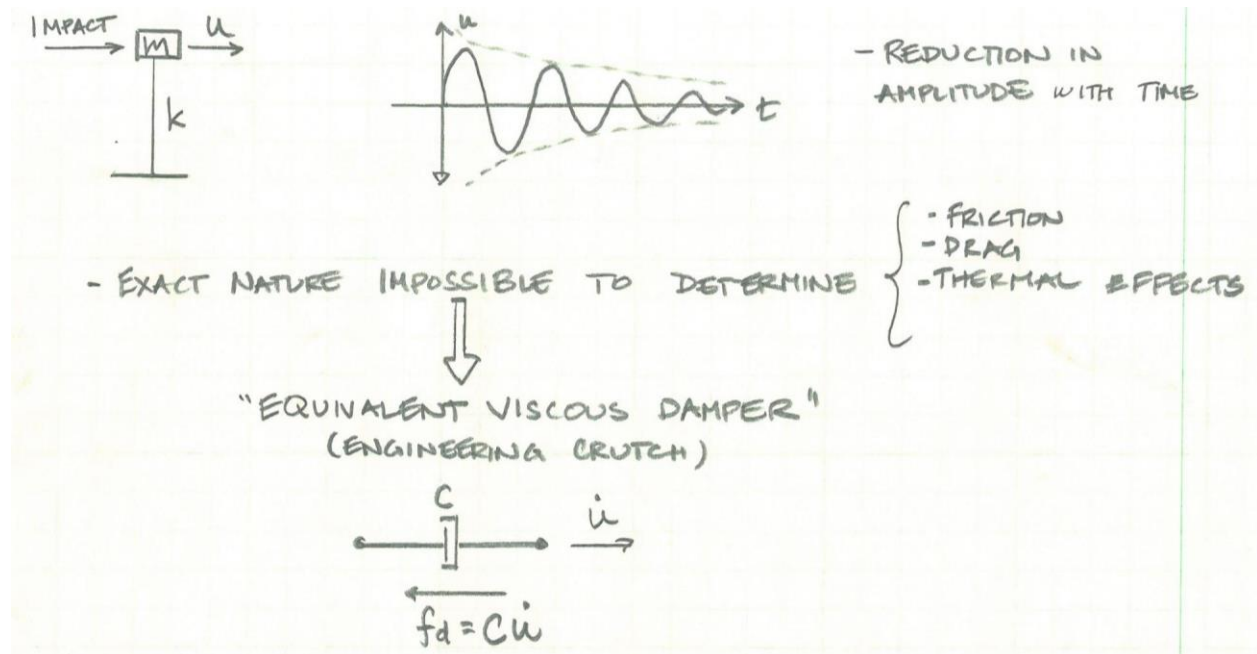 IMPACT
m
u
k
u
t
- REDUCTION IN
AMPLITUDE WITH TIME
- EXACT NATURE IMPOSSIBLE TO DETERMINE
- FRICTION
- DRAG
- THERMAL EFFECTS
"EQUIVALENT VISCOUS DAMPER"
(ENGINEERING CRUTCH)
C
u̇
fd = Cu̇